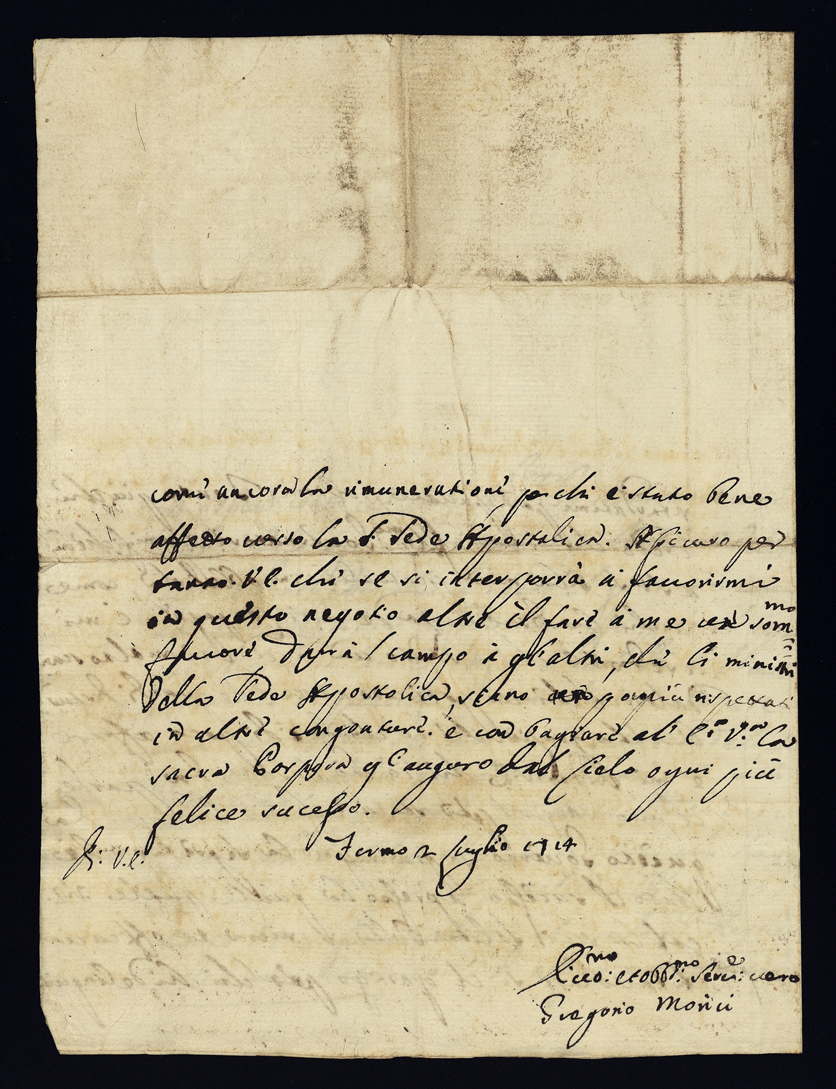 come ancora la rimuneratione per chi è stato bene
affetto verso la S. Sede Apostolica. Assicuro per
tanto V.E. che se si interporrà à favorirmi
in questo negotio altre il fare à me un som^mo
favore darà campo à gl'altri, che li ministri
della Sede Apostolica siano più rispettati
in altre congonture. e con bagiare al' E.^a V.^ra la
sacra Porpora gl'auguro dal Cielo ogni più
felice sucesso.
Di: V.E. Fermo 2 luglio 1714
et obb^mo: Serv:^e vero
Gregorio Morici